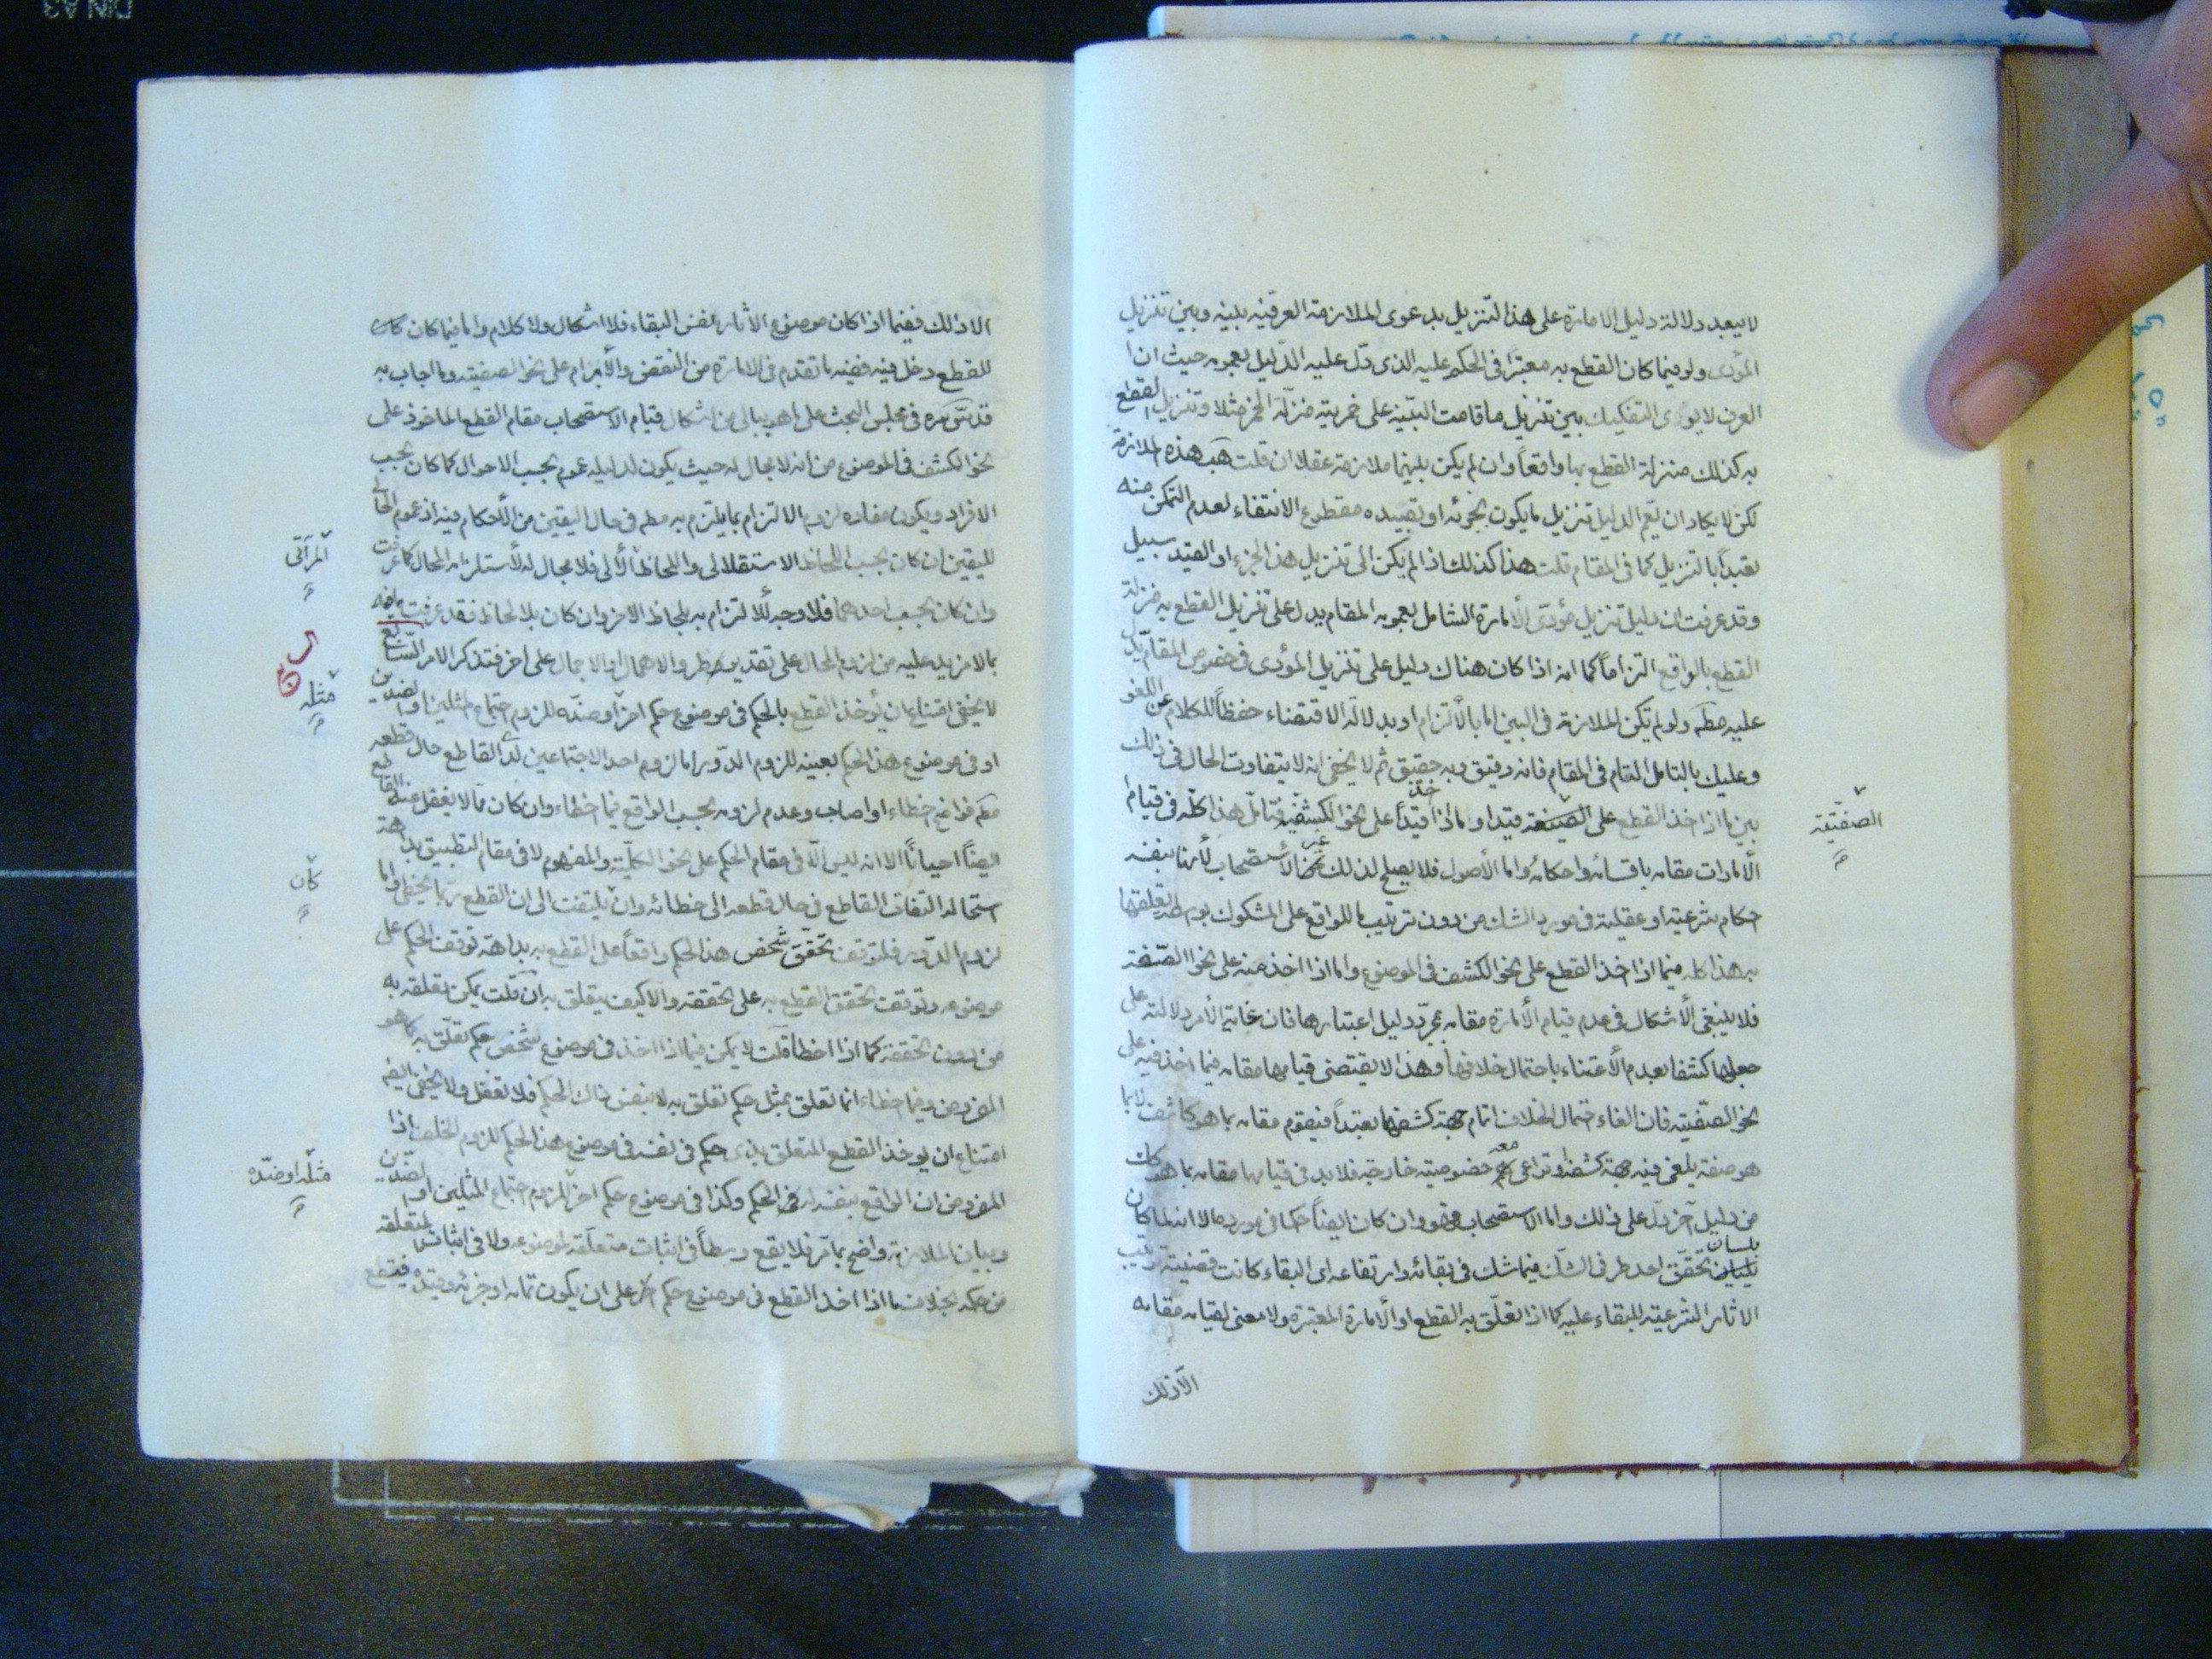 لا يبعد دلالة دليل الامارة على هذا التنزيل بدعوى الملازمة العرفيّه بينه وبين تنزيل
المؤدى ولو فيما كان القطع به معتبرًا فى الحكم عليه الذى دلّ عليه الدليل بعمومه حيث ان
العرف لا يرى التفكيك بين تنزيل ما قامت البيّنه على خمريته منزلة الخمر مثلا وتنزيل القطع
به كذلك منزلة القطع بها واقعاً وان لم يكن بينهما ملازمة عقلا ان قلت هَب هذه الملازمة
لكن لا يكاد ان يعّم الدليل تنزيل ما يكون بجزئه او بقيده مقطوع الانتفاء لعدم التمكن منه
تعبداً بالتنزيل كما فى المقام قلت هذا كذلك اذا لم يكن الى تنزيل هذا الجزء او القيد سبيل
وقد عرفت ان دليل تنزيل مؤدّى الأمارة الشامل بعمومه المقام يدل على تنزيل القطع به منزلة
القطع بالواقع التزاماً كما انه اذا كان هناك دليل على تنزيل المؤدى فى خصوص المقام يدّل
عليه مطلقا ولو لم تكن الملازمة فى البين اما بالألتزام او بدلالة الاقتضاء حفظاً للكلام عن اللغو
وعليك بالتامل التام فى المقام فانه دقيق وبه حقيق ثم لا يخفى انه لا يتفاوت الحال فى ذلك
بين ما اذا اخذ القطع على الصفة قيدا او ما اذا اخذ قيداً على نحو الكشفيّه فتامّل هذا كلّه فى قيام
الصفتيّة
الأمارات مقامه باقسامه واحكامه واما الأصول فلا يصلح لذلك غير الأستصحاب لأنها بنفسه
احكام شرعيّه او عقليّه فى مورد الشك من دون ترتيب ما للواقع على المشكوك بواسطة تعلقها
به هذا كله فيما اذا اخذ القطع على نحو الكشف فى الموضوع واما اذا اخذ منه على نحو الصّفة
فلا ينبغى الأشكال فى عدم قيام الأمارة مقامه بمجرّد دليل اعتبارها فان غاية الأمر دلالته على
جعلها كشفا بعدم الأعتناء باحتمال خلافها وهذا لا يقتضى قيامها مقامه فيما اخذ فيه على
نحو الصّفتيّه فان الغاء احتمال الخلاف اتمام جهة كشفها تعبّداً فيقوم مقامه بما هو كاشف لا بما
هو صفة يلغى فيه جهة كشفه وتراعى معه خصوصيّه خارجيّه فلا بد فى قيامها مقامه بما هو كان
من دليل آخر دلّ على ذلك واما الاستصحاب فهو وان كان ايضاً حكما فى مورده الا انه لما كان
بلسان تحقّق احد طرفى الشّك فيما شك فى بقائه وارتفاعه اى البقاء كانت قضيته ترتيب
الاثار الشرعيّه للبقاء عليه كما اذا تعلّق به القطع او الأمارة المعتبرة ولا معنى لقيامه مقامه
الّا ذلك
الا ذلك ففيما اذا كان موضوع الاثار نفس البقاء فلا اشكال ولا كلام واما فيما كان كان
للقطع دخل فيه فقيه ما تقدم فى الامارة من النقض والأبرام على نحو الصفتيه وما اجاب به
قدّس سّره فى مجلس البحث على ما هو ببالى من اشكال قيام الاستصحاب مقام القطع الماخوذ على
نحو الكشف فى الموضوع من انه لا مجال له حيث يكون لدليله عموم بحسب الاحوال كما كان بحسب
الافراد ويكون مفاده لزوم الالتزام بما يلتزم به مطلقا فى حال اليقين من الأحكام فيه اذ عموم الحال
لليقين ان كان بحسب اللحاظ الاستقلالى واللحاظ الألى فلا مجال له لأستلزامه المحال كما عرفت
المرآتى
وان كان بحسب احدهما فلا وجه للألتزام به بلحاظ الاخر وان كان بلا لحاظ فقد عرفت ما فيه
بما لا مزيد عليه من لزوم المحال على تقدير والاهمال او الاجمال على اخر فتذكر الامر السّابع
لا يخفى امتناع ان يؤخذ القطع بالحكم فى موضوع حكم اخر او ضدّه للزوم اجتماع المثلين او الضدين
مثله
او فى موضوع هذا الحكم بعينه للزوم الدّور اما لزوم احد الاجتماعين لدى القاطع حال قطعه
مطلقا فواضح اخطاء او اصاب وعدم لزومه بحسب الواقع فيما اخطاء وان كان مّما لا يغفل عنه القاطع
ايضاً احياناً الا انه ليس الّا فى مقام الحكم على نحو الكلّيّة والمفهوم لا فى مقام التطبيق بداهة
استحاله التفات القاطع فى حال قطعه الى خطائه وان يلتفت الى ان القطع ربّما يخطى واما
كان
لزوم الدّور فلتوقف تحقّق شخص هذا الحكم واقعاً على القطع به بداهة توقف الحكم على
موضوعه وتوقف تحقق القطع به على تحققه والا كيف يتعلق به ان قلت يمكن تعلقه به
من دون تحققه كما اذا اخطأ قلت لا يمكن فيما اذا اخذ فى موضوع شخص حكم تعلّق به كما هو
المفروض وفيما اخطاء انما تعلق بمثل حكم تعلق به لا بنفس ذاك الحكم فلا تغفل ولا يخفى ايضا
امتناع ان يوخذ القطع المتعلق بذى حكم فى نفسه فى موضوع هذا الحكم للزوم الخلف اذا
المفروض ان الواقع بنفسه له الحكم وكذا فى موضوع حكم اخر للزوم اجتماع المثلين او الضّدين
مثله او ضدّه
وبيان الملازمة واضح بما مّر فلا يقع وسطاً فى اثبات متعلّقه لموضوعه ولا فى اثبات لمتعلقه
من حكمه بخلاف ما اذا اخذ القطع فى موضوع حكم اخر على ان يكون تمامه او جزئه وقيده فيقع